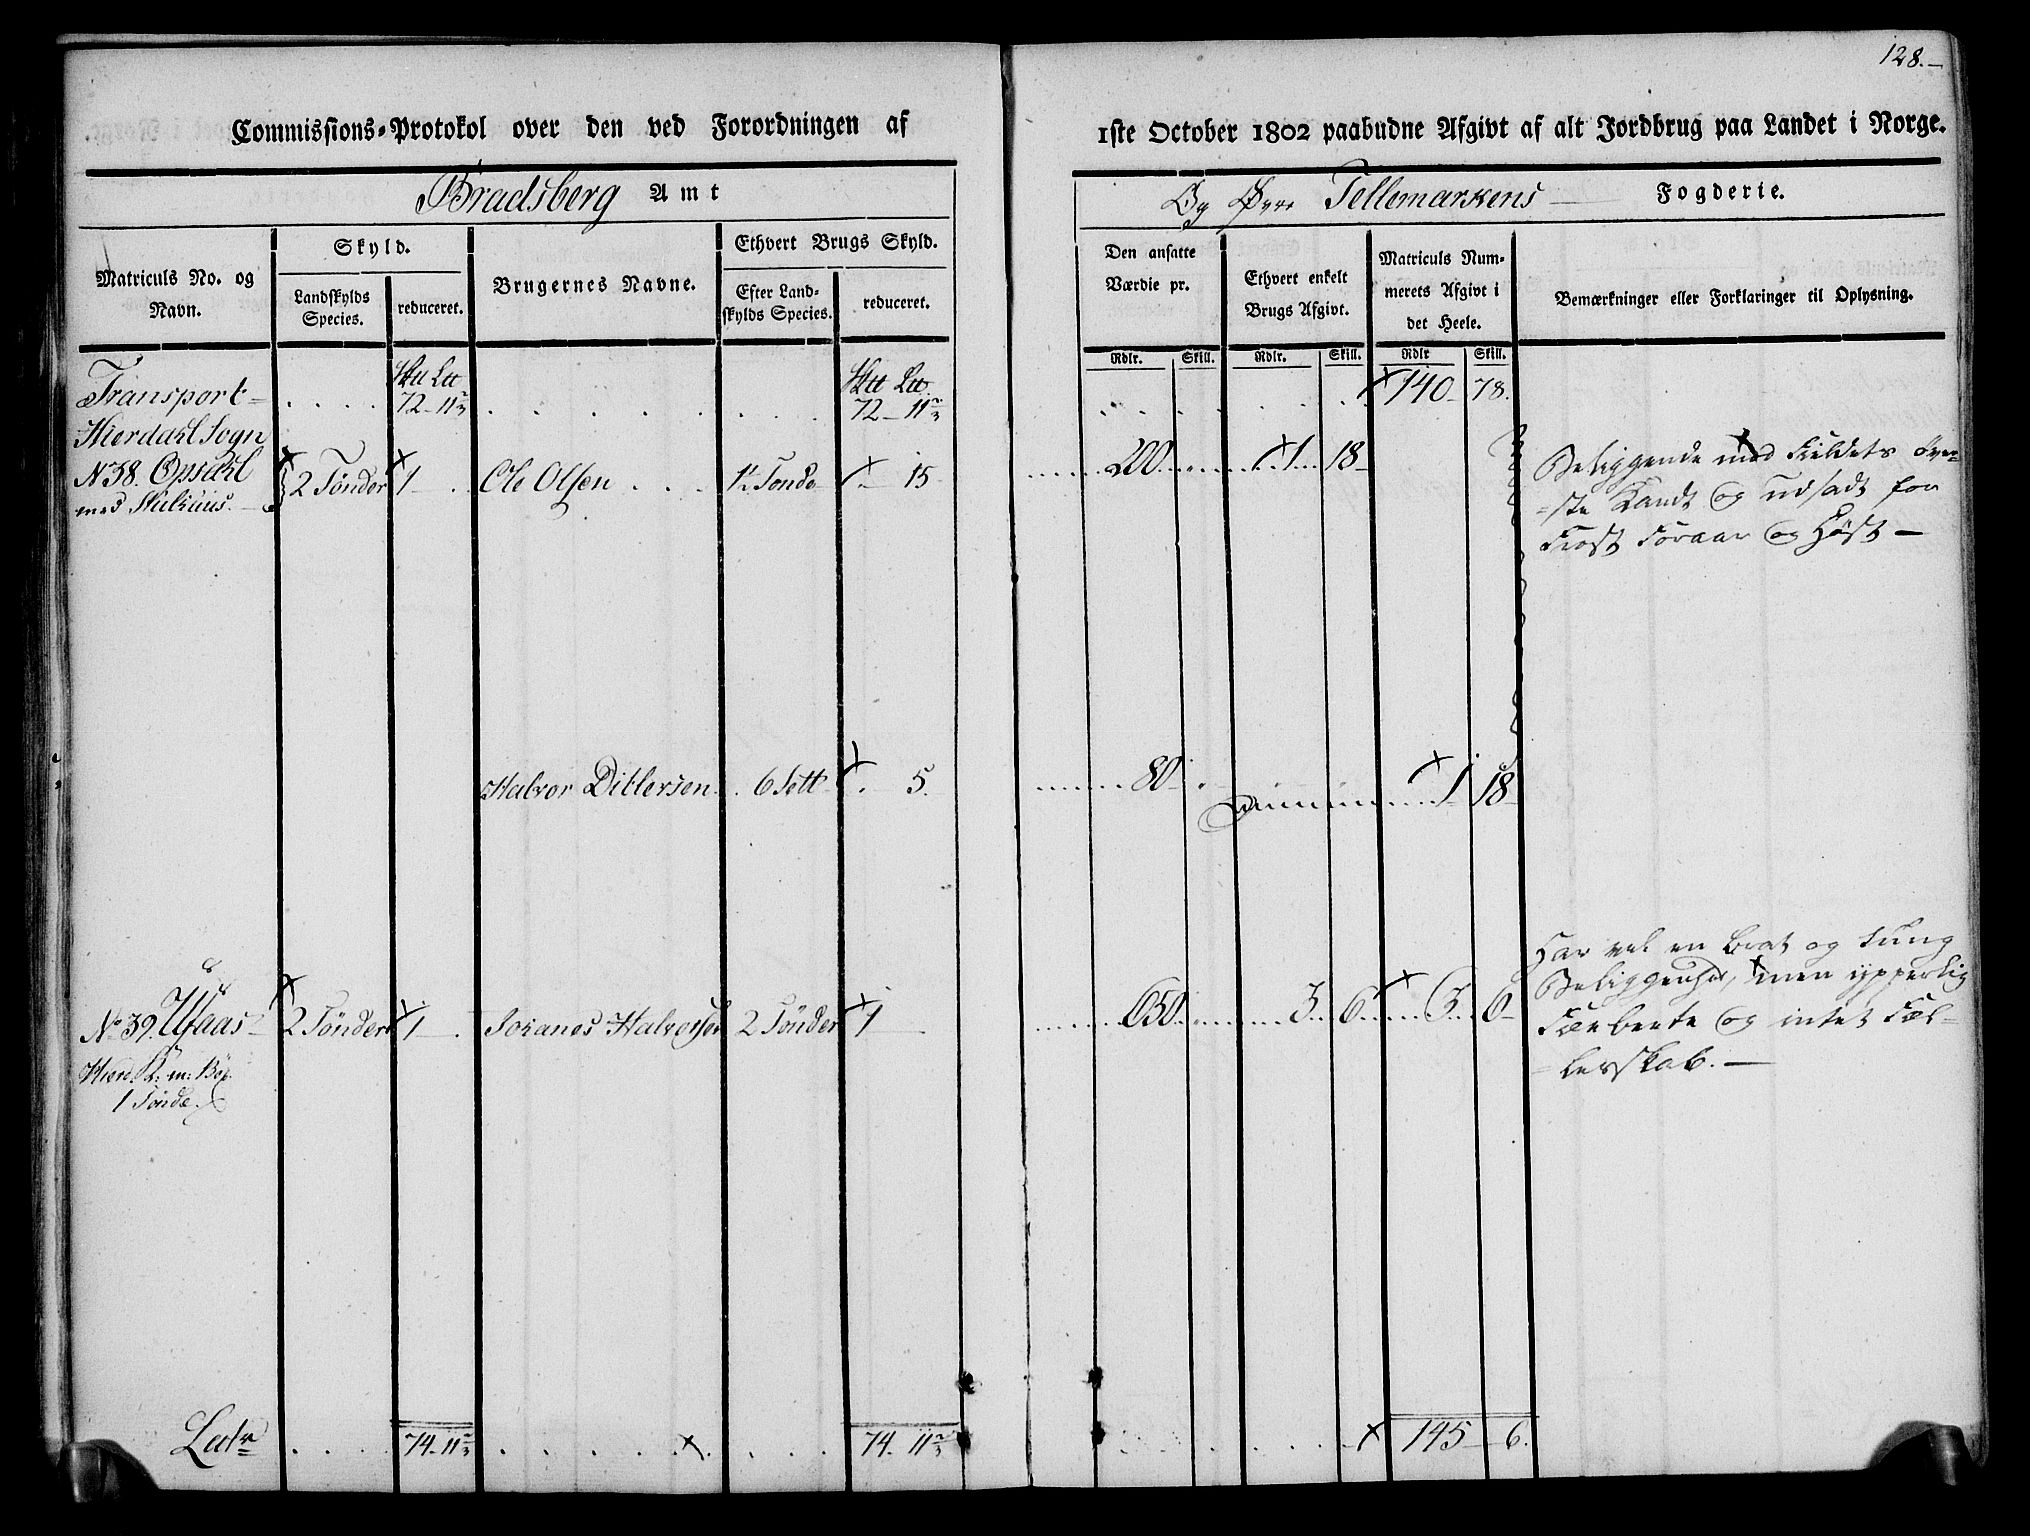 128.
Commissions-Protokol over den ved Forordningen af 1ste October 1802 paabudne Afgivt af alt Jordbrug paa Landet i Norge.
Bradsberg Amt
Og Øvre Tellemarkens Fogderie.
Matriculs No. og Navn.
Skyld.
Landskylds Species.
reduceret.
Brugernes Navne.
Ethvert Brugs Skyld.
Efter Landskylds Species.
reduceret.
Den ansatte Værdie pr.
Ethvert enkelt Brugs Afgivt.
Matriculs Nummerets Afgivt i det Heele.
Bemærkninger eller Forklaringer til Oplysning.
Rdlr. Skill. Rdlr. Skill. Rdlr Skill.
Transport 72 11 2/3 72 11 2/3 140 78.
Hierdahl Sogn
No 38. Opsahl 2 Tönder 1 Ole Olsen 1½ Tönde 15 200 1 18
Beliggende med Fieldets Øver-
=ste Kandt og udsadt for
Frost Foraar og Høst —
Halvor Ditlersen 6 Sett 5. 80 1 18
No 39. Ufaas 2 Tönder 1 Johanes Halvorsen 2 Tönder 1 650 3 6 3 6
Hierd. K: m: Böx
1 Tönde.
Har vel en brat og tung
Beliggenhed, men ypperlig
Fæebeete og intet Fæl-
leskab. —
Late 74 11 2/3 74. 11 2/3 145 6.